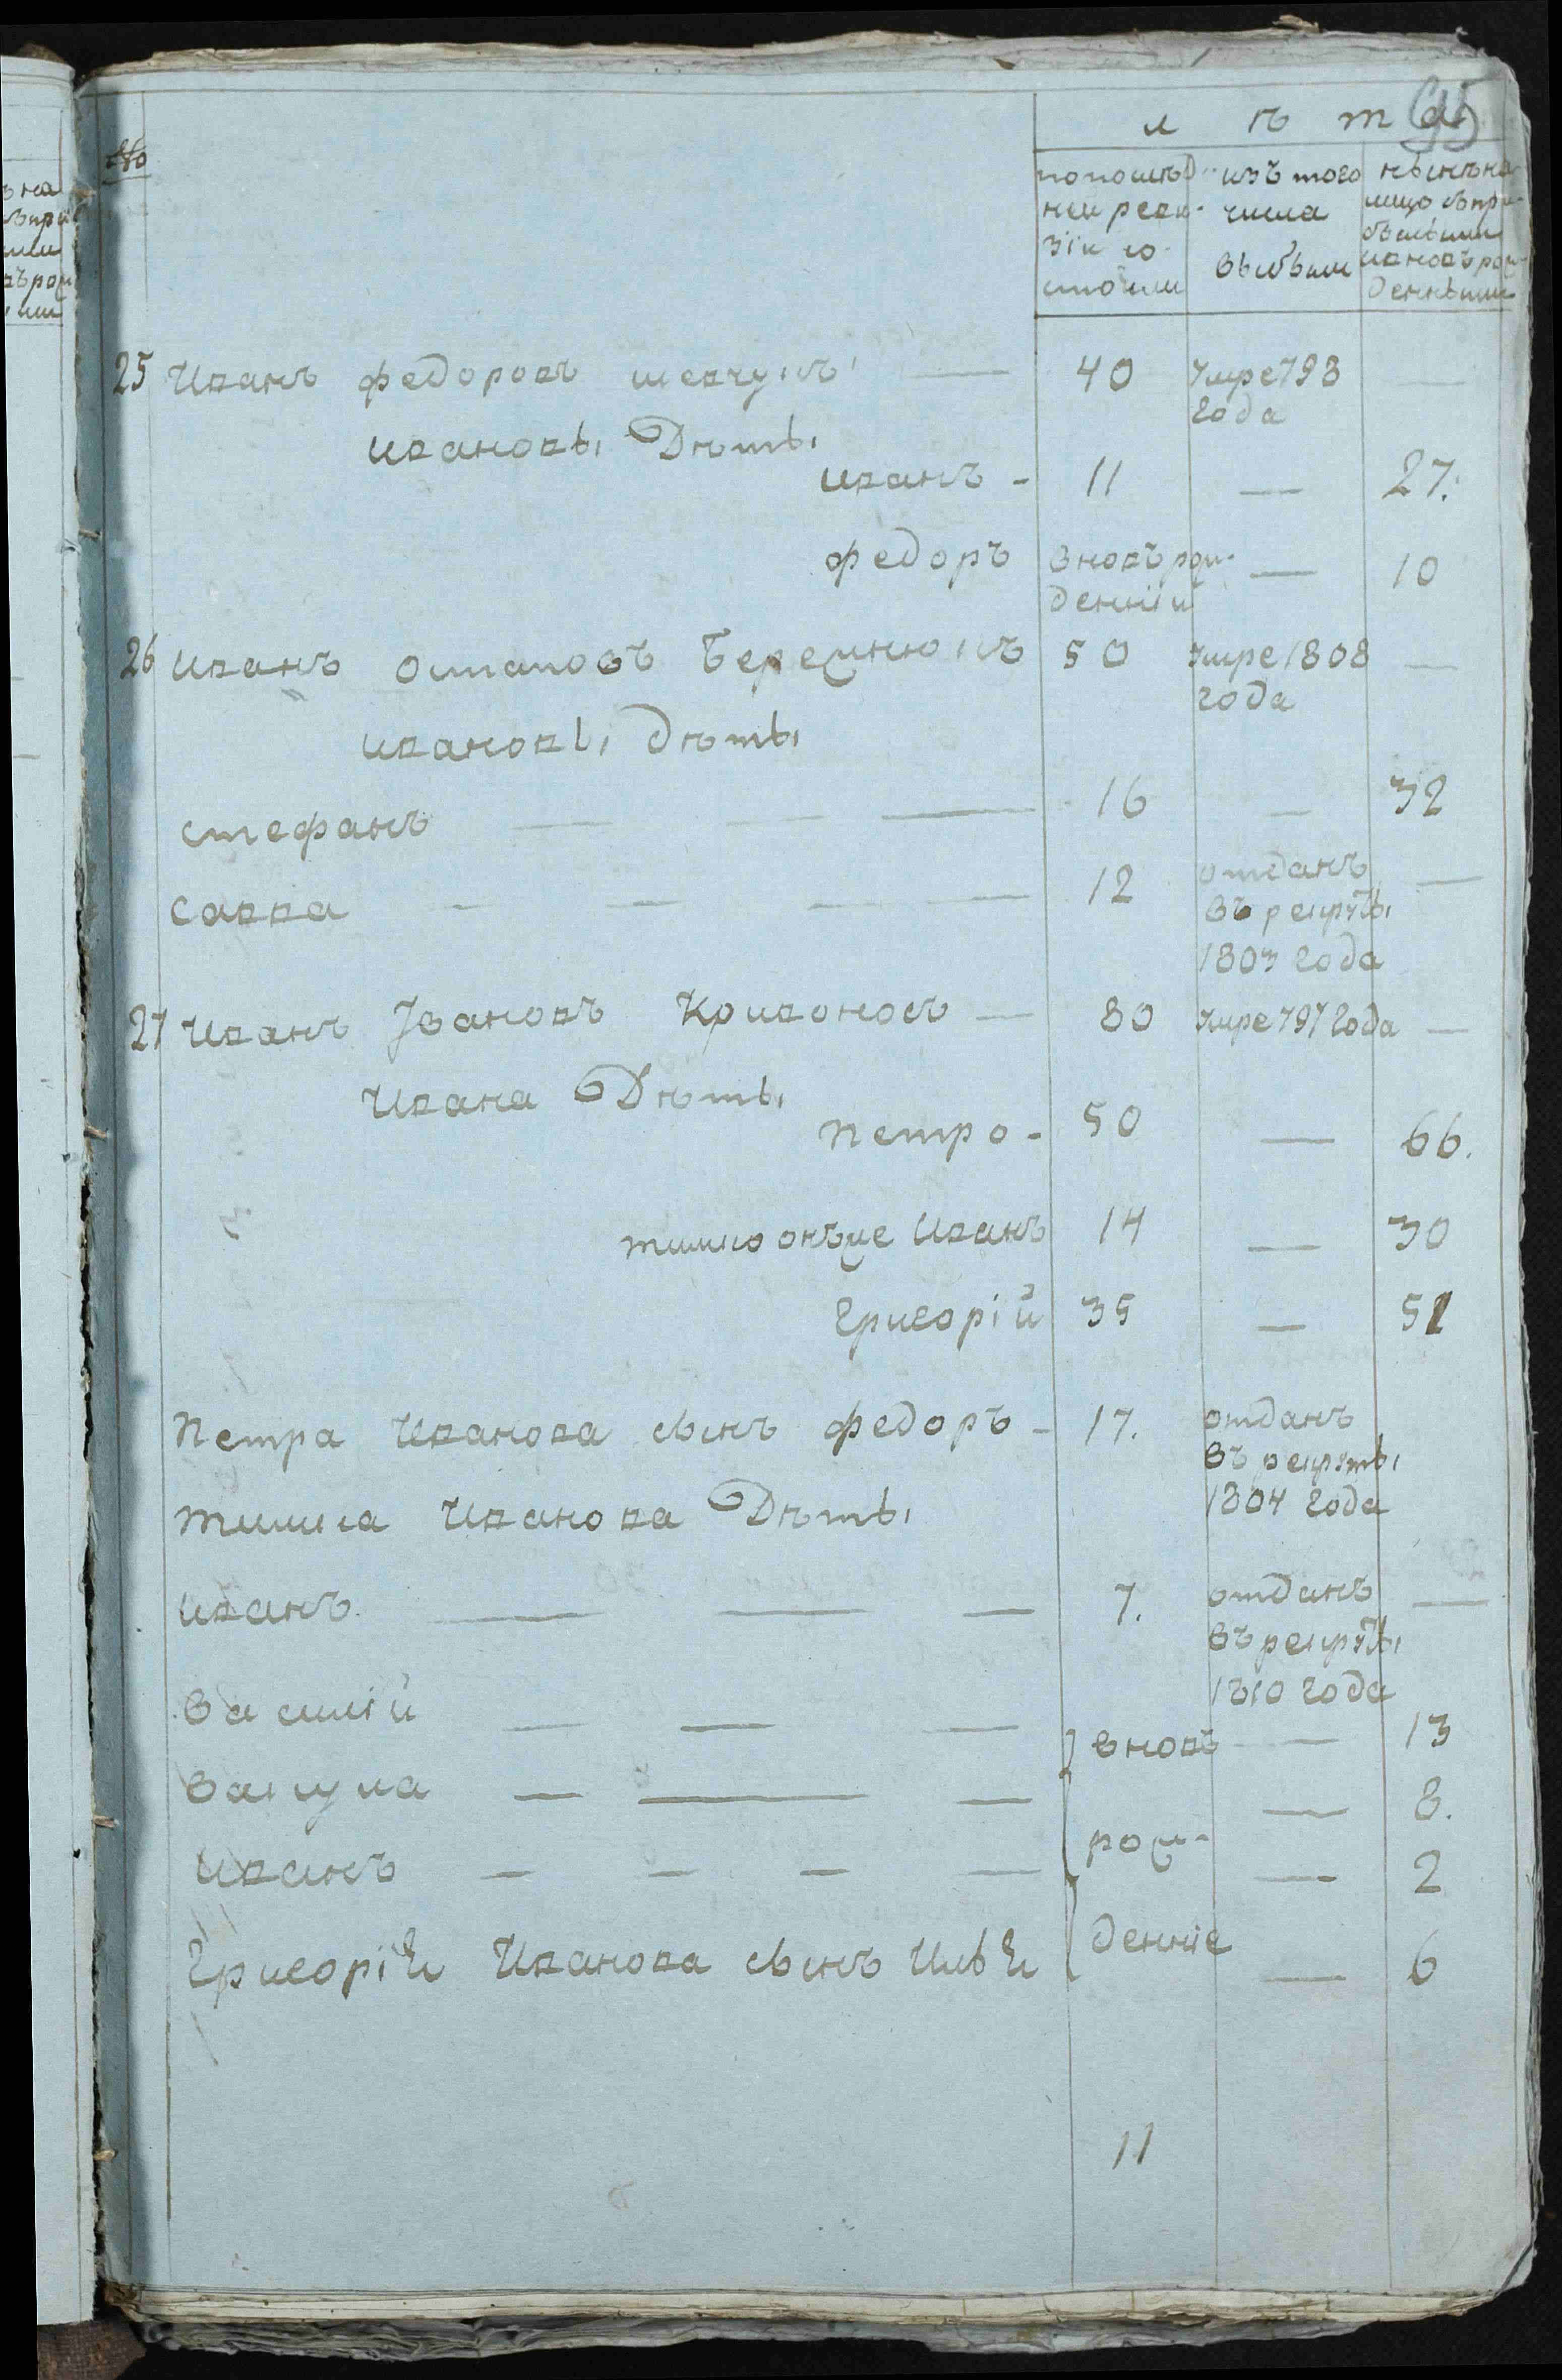 95
№
лѣта
по послѣд-
ней реви-
зіи со-
стояли
изъ того
числа
выбыли
нынѣ на
лицо съ при-
былыми
и вновь рож-
денными
25 Иванъ Федоровъ шевчукъ — 40 Умре 793 —
года
Ивановы Дѣты
иванъ - 11 — 27.
Федоръ вновь рож- — 10
денній
26 иванъ остаповъ Бережнюкъ 50 Умре 1808 —
года
ивановы дѣты
стефанъ — — — 16 — 32
савва - — — — 12 отданъ —
въ рекруты
1803 года
27 Иванъ Jвановъ Кривоносъ — 80 Умре 797 года —
Ивана Дѣты
Петро - 50 — 66.
тимко онъже иванъ 14 — 30
Григорій 35 — 51
Петра Иванова сынъ Федоръ - 17. отданъ
въ рекруты
1804 года
тимка Иванова Дѣты
иванъ — — — 7. отданъ —
въ рекруты
1810 года
Василій — — — вновь — 13
Вакула — — — — 8.
иванъ — — — — рож- — 2
Григорій Иванова сынъ денніе — 6
11